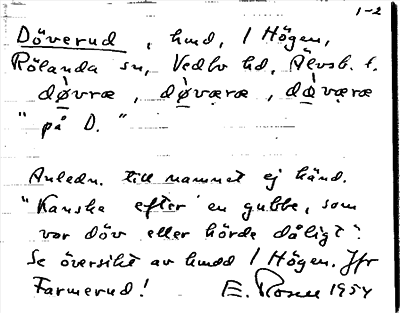 1-2
Döverud, hmd, 1 Högen,
Rölanda sn, Vedbo hd, Älvsb. l.
dø̀vræ, dø̀væræ, dø̀væræ
"på D."
Anledn. till namnet ej känd.
"Kanske efter en gubbe, som
var döv eller hörde dåligt".
Se översikt av hmdd 1 Högen. Jfr
Farmerud! E. Rosell 1954